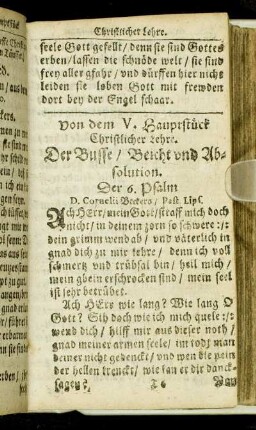 Christlicher Lehre.
seele Gott gefelt / denn sie sind Gottes
erben / lassen die schnöde welt / sie sind
frey aller gfahr / vnd dürffen hier nicht
leiden sie loben Gott mit frewden
dort bey der Engel schaar.
Von dem V. Hauptstück
Christlicher Lehre.
Der Busse / Beicht vnd Ab-
solution.
Der 6. Psalm
D. Cornelii Beckers / Past. Lips.
Ach HErr / mein Gott / straff mich doch
nicht / in deinem zorn so schwere :/:
dein grimm wend ab / vnd väterlich in
gnad dich zu mir kehre / denn ich voll
schmertz vnd trübsal bin / heil mich /
mein gbein erschrocken sind / mein seel
ist sehr betrübet.
Ach HErr wie lang? Wie lang O
Gott? Sih doch wie ich mich quele :/:
wend dich / hilff mir aus dieser noth /
gnad meiner armen seele / im todt man
deiner nicht gedenckt / vnd wen die pein
der hellen krenckt / wie kan er dir danck-
sagen?